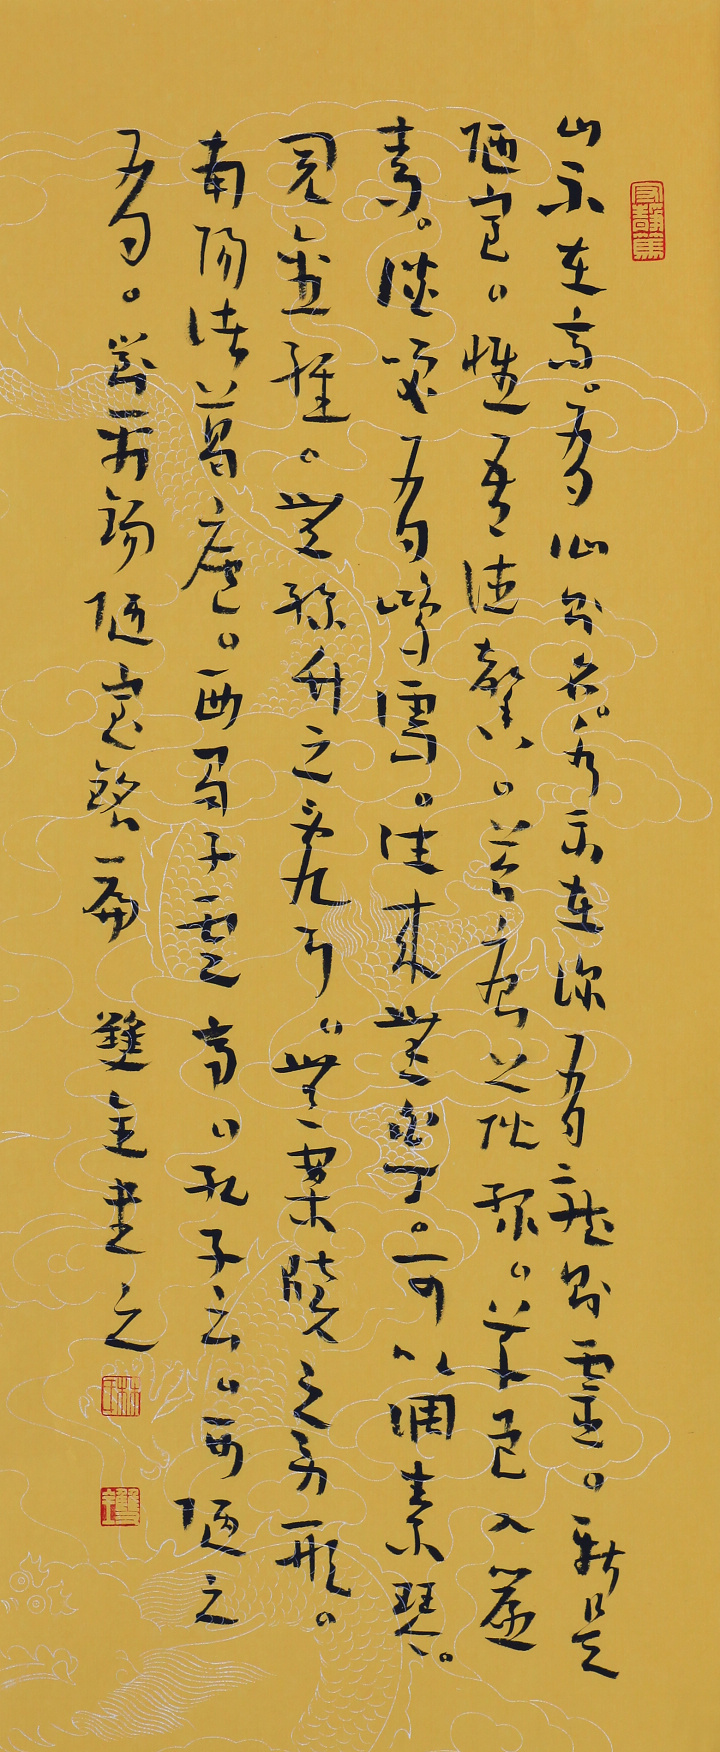 山不在高。有仙則名。水不在深有龍則靈。斯是
陋室。惟吾德馨。苔痕上階綠。草色入簾
青。談笑有鴻儒。往來無白丁。可以調素琴。
閱金經。無絲竹之亂耳。無案牘之勞形。
南陽諸葛廬。西蜀子雲亭。孔子云。何陋之
有。劉禹錫陋室銘一篇 雙全書之